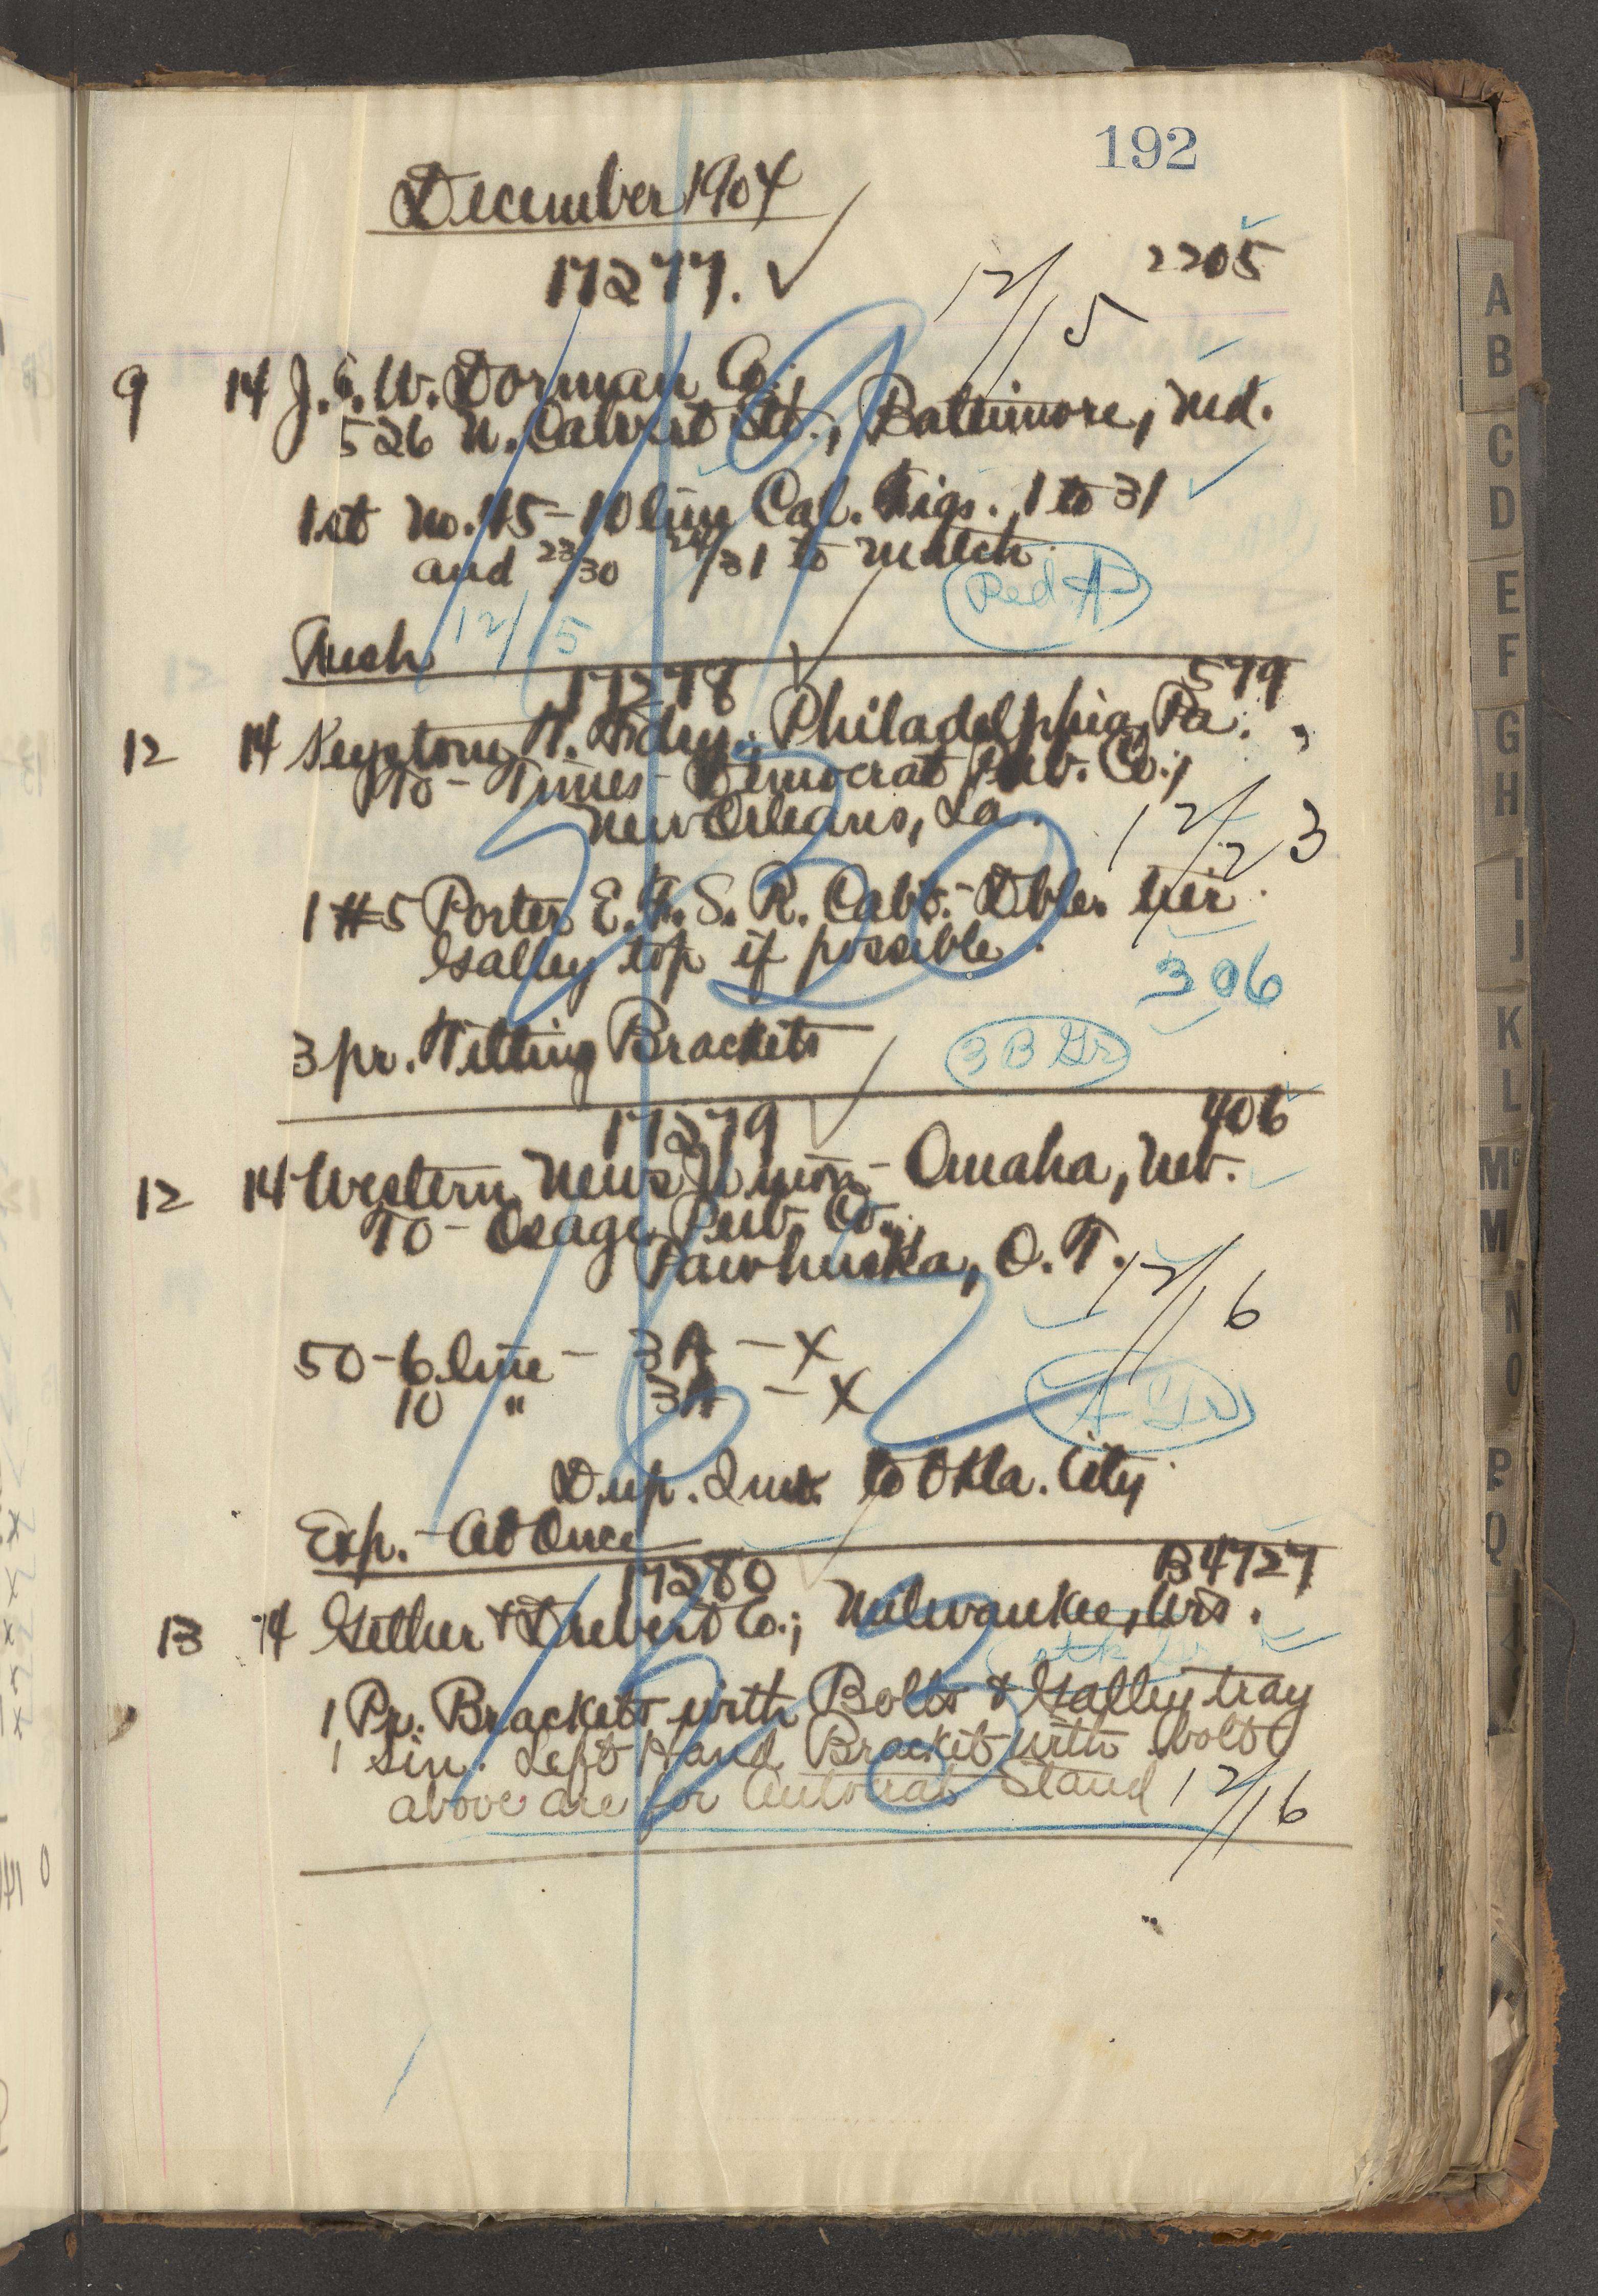 192
December 1904
17277. ✓
2205
12/15
9 14 J. F. W. Dorman Co.,
526 N. Calvert St., Baltimore, Md.
1 set No. 45-10 line Cal. Figs. 1 to 31
and 23/30 24/31 to match.
Red A
Rush 12/15
17278 579
12 14 Keystone T. Fdry. Philadelphia, Pa.
To - Times - Democrat Pub. Co.,
New Orleans, La.
12/23
1 #5 Porter E. F. S. R. Cabt. - Dble. tier.
Galley top if possible.
306
3 pr. Tilting Brackets
3 B Gr
17279 406
12 14 Western News Union - Omaha, Neb.
To - Osage Pub. Co.,
Pawhuska, O. T.
12/16
50 - 6 line - 3A - X
10 " 3A - X
A Gr
Dup. Inv. to Okla. City
Exp. - At Once
17280 B4727
13 14 Gether & Drebert Co.; Milwaukee, Wis.
1 Pr. Brackets with Bolts & Galley tray
1 Sin. Left Hand Bracket with bolts
above are for Autocrat Stand
12/16
A
B
C
D
E
F
G
H
I
J
K
L
Mc
M
N
O
P
Q